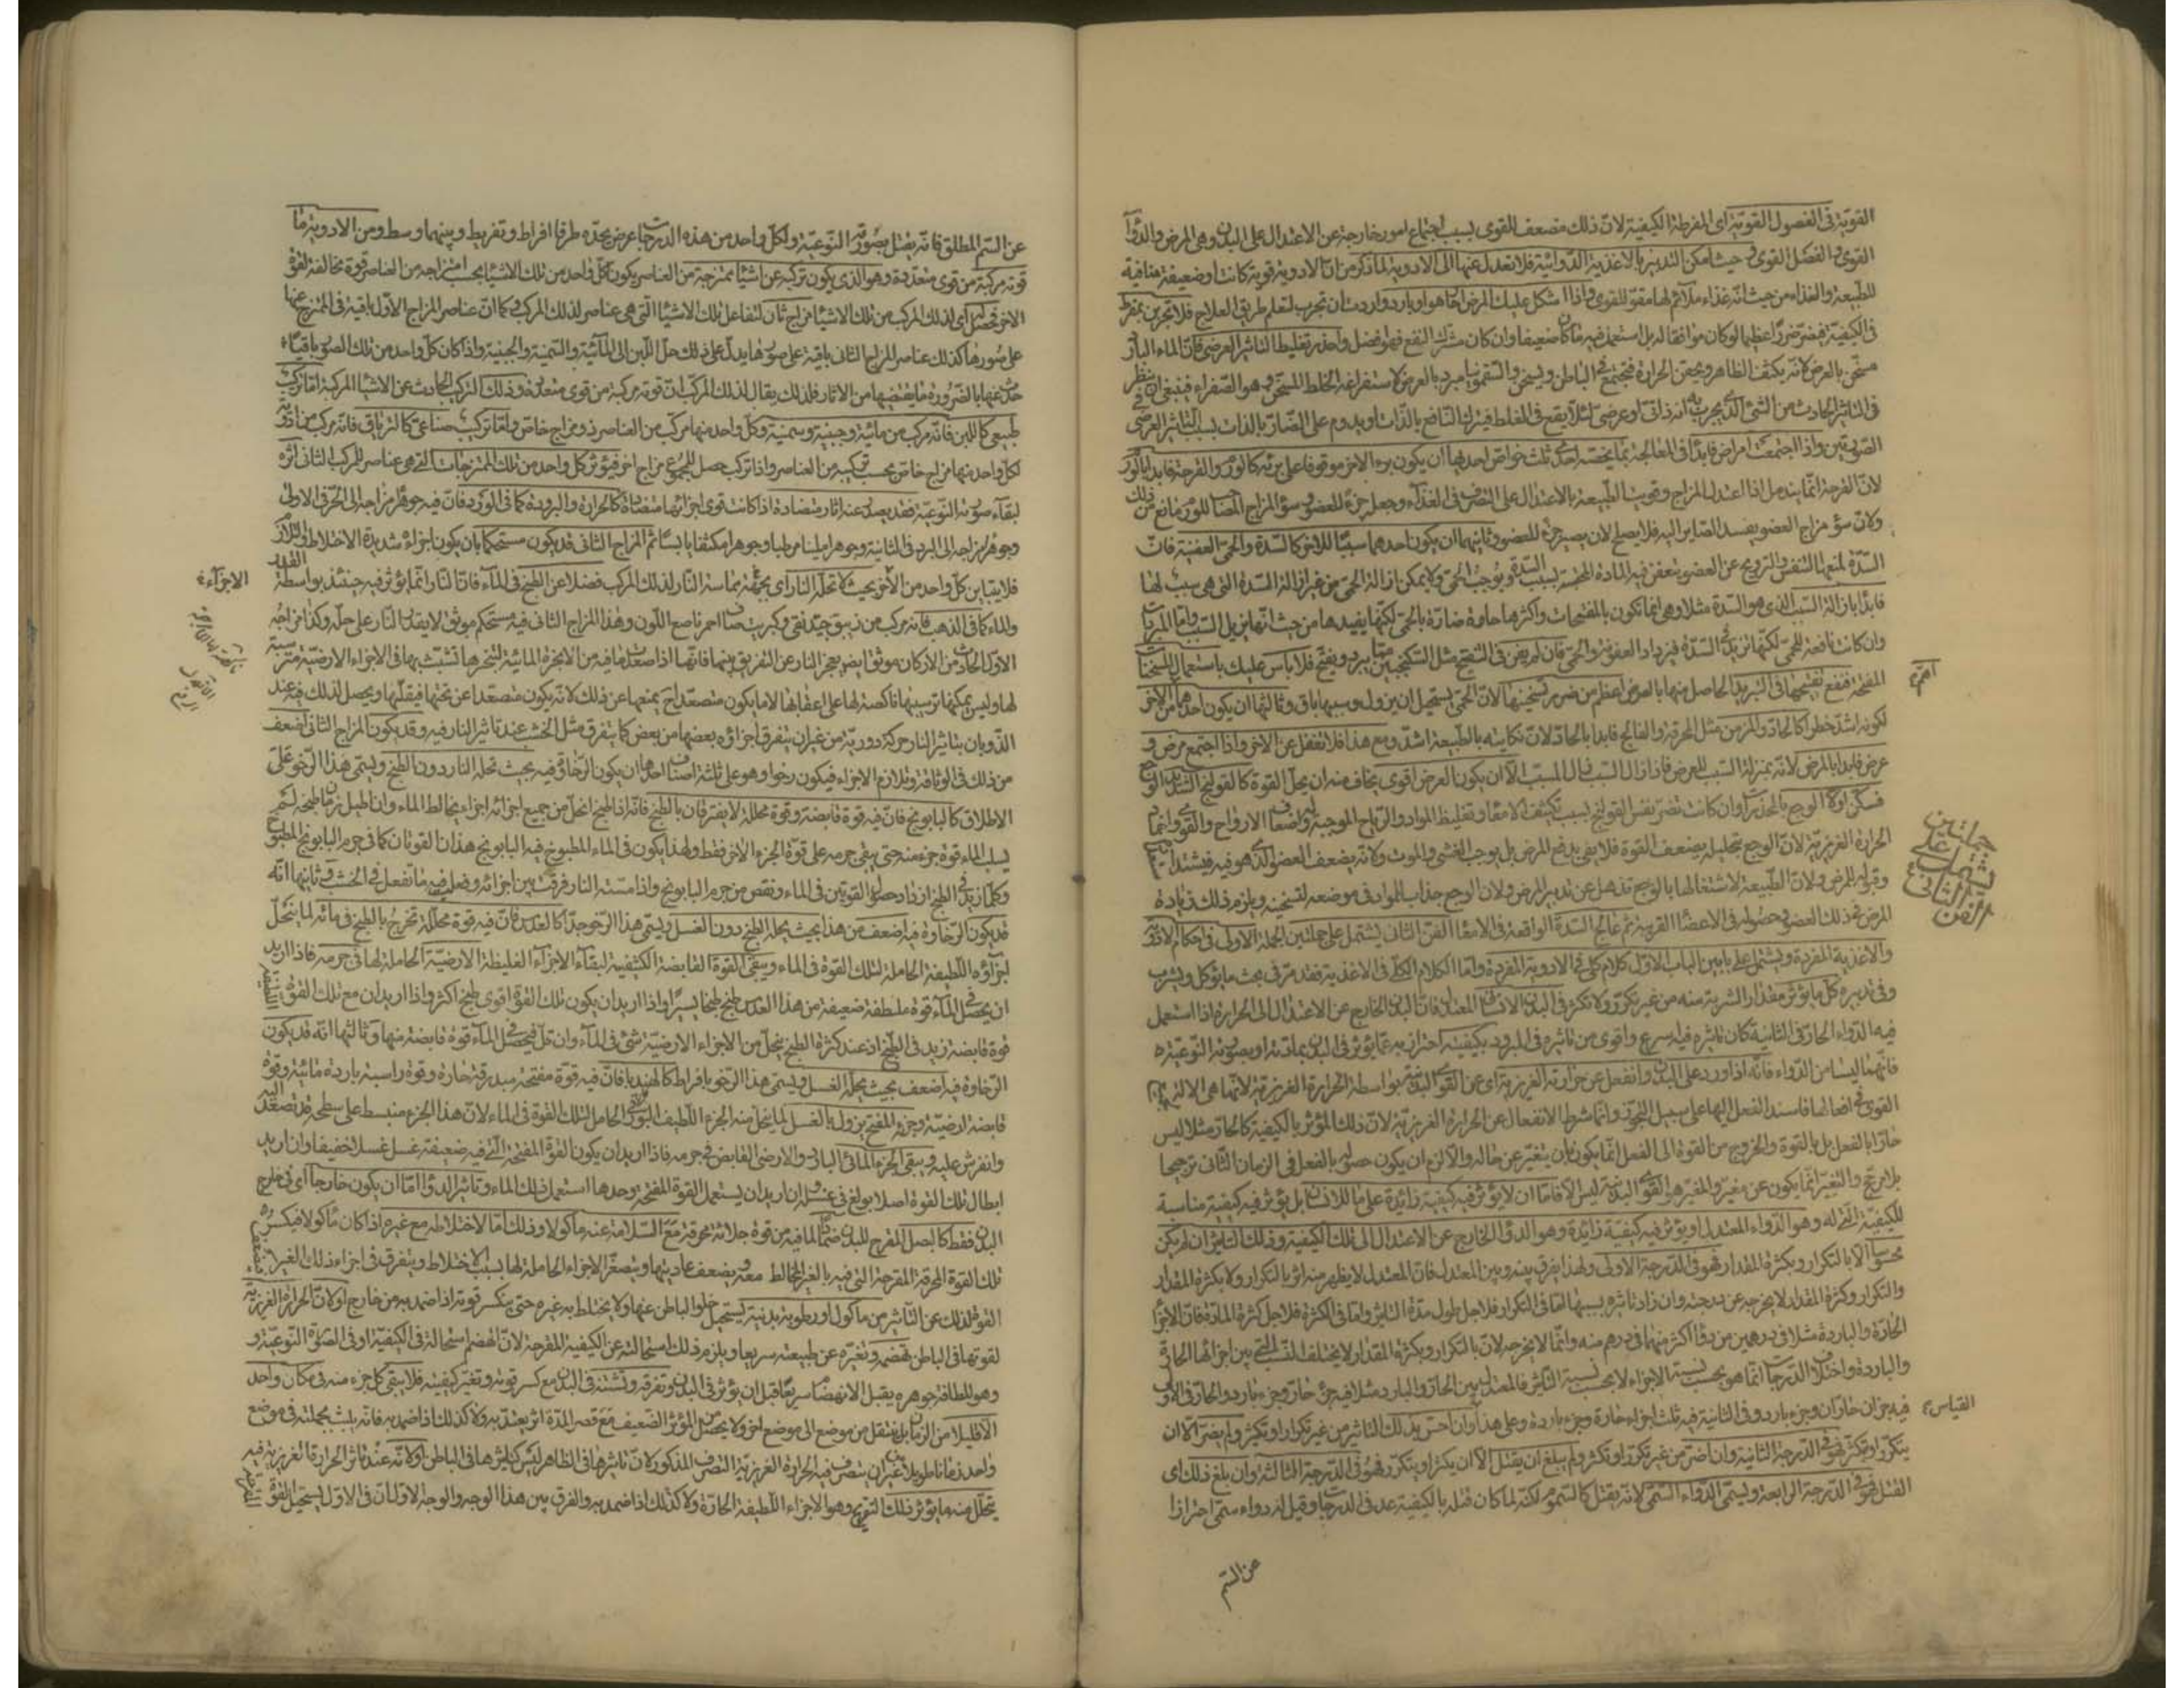 القوية فى الفصول القوية اى المفرطة الكيفية لان ذلك مضعف للقوى بسبب اجتماع امور خارجة عن الاعتدال على البدن وهى المرض والدوآ
القوى والفصل القوى وحيث امكن التدبير بالاغذية الدوائية فلا تعدل عنها الى الادوية لما ذكر من ان الادوية قوية كانت او ضعيفة منافية
للطبيعة والغذاء من حيث انه غذاء ملائم لها مقو للقوى واذا اشكل عليك المرض احار هو او بارد واردت ان تجرب لتعلم طريق العلاج فلا تجربن بمفرط
فى الكيفية فيضر ضررا عظيما لو كان موافقا له بل استعمل فيه ما كان ضعيفا وان كان مشترك النفع فهو افضل واحذر تغليط التاثير العرضى فان الماء البارد
مسخن بالعرض لانه يكثف الظاهر ويحقن الحرارة فتجتمع فى الباطن ويسخن والسقمونيا مبرد بالعرض لاستفراغه الخلط المسخن وهو الصفراء فينبغى ان ينظر
فى التاثير الحادث من الشئ الذى يجرب به انه ذاتى او عرضى لئلا يقع فى الغلط فيترك النافع بالذات ويدوم على الضار بالذات بسبب التاثير العرضى فى
الصورتين واذا اجتمعت امراض فابدأ فى المعالجة بما يخصه احدى ثلث خواص احدها ان يكون برء الاخر موقوفا على برئه كالورم والقرحة فابدأ بالورم
لان القرحة انما يندمل اذا اعتدل المزاج وقويت الطبيعة بالاعتدال على التصرف فى الغذآء وجعله جزء للعضو وسؤ المزاج المصاحب للورم مانع من ذلك
ولان سؤ مزاج العضو يفسد الصاير اليه فلا يصلح لان يصير جزء للعضو وثانيها ان يكون احدهما سببا للاخر كالسدة والحمى العفنية فان
السدة لمنعها التنفس والترويح عن العضو يتعفن فيه المادة المحتبسة بسبب السدة ويوجب الحمى ولا يمكن ازالة الحمى من غير ازالة السدة التى هى سبب لها
فابدأ بازالة السبب الذى هو السدة مثلا وهى انما تكون بالمفتحات واكثرها حامة ضارة بالحمى لكنها يفيدها من حيث انها يزيل السبب واما المبردات
وان كانت نافعة للحمى لكنها تزيد فى السدة فيزداد العفونة والحمى فان لم يفن فى التفتيح مثل السكنجبين مما يبرد ويفتح فلا باس عليك باستعمال المسخنات
المفتحة فنفع تفتيحها فى التبريد الحاصل منها بالعرض اعظم من ضرر تسخينها لان الحمى يستحيل ان يزول وسببها باق وثالثها ان يكون احدهما اهم من الاخر
لكونه اشد خطرا كالحاد والمزمن مثل المحرقة والفالج فابدأ بالحاد لان نكايته بالطبيعة اشد ومع هذا فلا تغفل عن الاخر واذا اجتمع مرض و
عرض فابدأ بالمرض لانه بمنزلة السبب للعرض فاذا زال السبب زال المسبب الا ان يكون العرض اقوى يخاف منه ان يحل القوة كالقولنج الشديد الوجع
فسكن اولا الوجع بالمخدرات وان كانت تضر نفس القولنج بسبب تكثيف الامعا وتغليظ المواد والرياح الموجبة له واضعاف الارواح والقوى وانما
الحرارة الغريزية لان الوجع بتحليله يضعف القوة فلا يفى بدفع المرض بل يوجب الغشى والموت ولانه يضعف العضو الذى هو فيه فيشتد
وقبوله للمرض ولان الطبيعة لاشتغالها بالوجع تذهل عن تدبير المرض ولان الوجع جذاب للمواد فى موضعه لتسخينه ويلزم ذلك زيادة
المرض فى ذلك العضو وحصوله فى الاعضا القريبة ثم عالج السدة الواقعة فى الامعا الفن الثانى يشتمل على جملتين الجملة الاولى فى احكام الادوية
والاغذية المفردة ويشتمل على بابين الباب الاول كلام كلى فى الادوية المفردة واما الكلام الكلى فى الاغذية فقد مر فى بحث ما يؤكل ويشرب
وفى تدبيره كل ما يؤثر مقدار الشربة منه من غير تكرر ولا تكثر فى البدن الانسانى المعتدل فان البدن الخارج عن الاعتدال الى الحرارة اذا استعمل
فيه الدواء الحار فى الثانية كان تاثيره فيه اسرع واقوى من تاثيره فى المبرود بكيفيته احترازا به عما يؤثر فى البدن بمادته او بصورته النوعية
فانهما ليسا من الدواء فانه اذا ورد على البدن وانفعل عن حرارته الغريزية اى عن القوى البدنية بواسطة الحرارة الغريزية لانها هى الالة لتلك
القوى فى افعالها فاسند الفعل اليها على سبيل التجوز وانما شرط الانفعال عن الحرارة الغريزية لان ذلك المؤثر بالكيفية كالحار مثلا ليس
حارا بالفعل بل بالقوة والخروج من القوة الى الفعل انما يكون بان يتغير عن حاله والا لزم ان يكون حصوله بالفعل فى الزمان الثانى ترجيحا
بلا مرجح والتغير انما يكون عن مغير والمغير هو القوى البدنية ليس الا فاما ان لا يؤثر فيه كيفية زائدة على ما للانسان بل يؤثر فيه كيفية مناسبة
للكيفية التى له وهو الدواء المعتدل او يؤثر فيه كيفية زائدة وهو الدواء الخارج عن الاعتدال الى تلك الكيفية وذلك التاثير ان لم يكن
محسوسا الا بالتكرار وبكثرة المقدار فهو فى الدرجة الاولى وبهذا يفرق بينه وبين المعتدل فان المعتدل لا يظهر منه اثر بالتكرار ولا بكثرة المقدار
والتكرار وكثرة المقدار لا يخرجه عن درجته وان زاد تاثيره بسببها اما فى التكرار فلاجل طول مدة التاثير واما فى الكثرة فلاجل كثرة المادة فان الاجزاء
الحارة والباردة مثلا فى درهمين من دواء اكثر منها فى درهم منه وانما لا يخرجه لان بالتكرار وبكثرة المقدار لا يختلف النسب التى بين اجزائها الحارة
والباردة واختلاف الدرجات انما هو بحسب نسبة الاجزاء لا بحسب نسبة التاثير فالمعتدل بين الحار والبارد مثلا فيه جزء حار وجزء بارد والحار فى الاولى
فيه جزآن حاران وجزء بارد وفى الثانية فيه ثلث اجزاء حارة وجزء باردة وعلى هذا وان احس بذلك التاثير من غير تكرار او تكثر ولم يضر الا ان
يتكرر او يتكثر فهو فى الدرجة الثانية وان اضر من غير تكرر او تكثر ولم يبلغ ان يقتل الا ان يكثر او يتكرر فهو فى الدرجة الثالثة وان بلغ ذلك اى
القتل فهو فى الدرجة الرابعة ويسمى الدواء السمى لانه يقتل كالسموم لكنه لما كان قتله بالكيفية عد فى الدرجات وقيل له دواء سمى احترازا
عن السم
اهم
جملتين
يشتمل على
الفن الثانى
القياس
عن السم المطلق فانه يقتل بصورته النوعية ولكل واحد من هذه الدرجات عرض يحده طرفا افراط وتفريط وبينهما وسط ومن الادوية ما
قوته مركبة من قوى متعددة وهو الذى يكون تركبه عن اشيا ممتزجة من العناصر يكون لكل واحد من تلك الاشيا بحسب امتزاجه من العناصر قوة مخالفة لقوة
الاخر فيحصل اى لذلك المركب من تلك الاشيا مزاج ثان لتفاعل تلك الاشيا التى هى عناصر لذلك المركب وكما ان عناصر المزاج الاول باقية فى الممتزج عنها
على صورها كذلك عناصر المزاج الثانى باقية على صورها يدل على ذلك حل اللبن الى المائية والسمنية والجبنية واذا كان كل واحد من تلك الصور باقيا
حدث عنها بالضرورة ما يقتضيها من الاثار فلذلك يقال لذلك المركب ان قوته مركبة من قوى متعددة وذلك التركب الحادث عن الاشيا المركبة اما تركب
طبيعى كاللبن فانه مركب من مائية وجبنية وسمنية وكل واحد منها مركب من العناصر ذو مزاج خاص واما تركيب صناعى كالترياق فانه مركب من ادوية
لكل واحد منها مزاج خاص بحسب تركيبه من العناصر واذا تركب حصل للمجموع مزاج اخر فيؤثر كل واحد من تلك الممتزجات التى هى عناصر للمركب الثانى اثره
لبقاء صورته النوعية فقد يصدر عنه اثار متضادة اذا كانت قوى اجزائها متضادة كالحرارة والبرودة كما فى الورد فان فيه جوهرا مزاجه الى الحر فى الاولى
وجوهر مزاجه الى البرد فى الثانية وجوهرا ملينا مرطبا وجوهرا مكثفا يابسا ثم المزاج الثانى قد يكون مستحكما بان يكون اجزاء شديدة الاختلاط والتلازم
فلا يتباين كل واحد من الاخر بحيث لا تحله النار اى بحرقه مماسة النار لذلك المركب فضلا عن الطبخ فى الماء فان النار انما يؤثر فيه حينئذ بواسطة
والماء كما فى الذهب فانه مركب من زيبق جيد نقى وكبريت صاف احمر ناصع اللون وهذا المزاج الثانى فيه مستحكم موثق لا يقدر النار على حله وكذا مزاجه
الاول الحادث من الاركان موثق ايضا يعجز النار عن التفريق بينها فانها اذا صعدت ما فيه من الاجزة المائية لتبخرها تشبث بها فى الاجزاء الارضية مترسبة
لها وليس يمكنها ترسيبها ناكصة لها على اعقابها الا ما يكون متصعدا ح يمنعها عن ذلك لانه يكون متصعدا عن تحتها فيقلها ويحصل لذلك فيه عند
الذوبان بتاثير النار حركة دورية من غير ان يتفرق اجزاؤه بعضها من بعض كما يتفرق مثل الخشب عند تاثير النار فيه وقد يكون المزاج الثانى اضعف
من ذلك فى الوثاقة وتلازم الاجزاء فيكون رخوا وهو على ثلثة اصناف احدها ان يكون الرخاوة فيه بحيث تحله النار دون الطبخ ويسمى هذا الرخو على
الاطلاق كالبابونج فان فيه قوة قابضة وقوة محللة لا يفترقان بالطبخ فانه اذا طبخ انحل من جميع اجزائه اجزاء يخالط الماء وان اطيل زمان طبخه لم
يسلب الماء قوة جزء منه حتى يبقى جرمه على قوة الجزء الاخر فقط ولهذا يكون فى الماء المطبوخ فيه البابونج هذان القوتان كما فى جرم البابونج المطبوخ
وكلما زيد فى الطبخ ازداد حصول القوتين فى الماء ونقص من جرم البابونج واذا مسته النار فرقت بين اجزائه وفعلت فيه ما تفعل فى الخشب وثانيها انه
قد يكون الرخاوة فيه اضعف من هذا بحيث يحله الطبخ دون الغسل ويسمى هذا الرخو جدا كالعدس فان فيه قوة محللة تخرج بالطبخ فى مائه لما ينحل
اجزاؤه اللطيفة الحاملة لتلك القوة فى الماء ويبقى القوة القابضة الكثيفية لبقاء الاجزاء الغليظة الارضية الحاملة لها فى جرمه فاذا اريد
ان يحصل فى الماء قوة ملطفة ضعيفة من هذا العدس طبخ طبخا يسيرا واذا اريد ان يكون تلك القوة اقوى طبخ اكثر واذا اريد ان مع تلك القوة
قوة قابضة زيد فى الطبخ اذ عند كثرة الطبخ ينحل من الاجزاء الارضية شئ فى الماء وان قل فيحصل فى الماء قوة قابضة منها وثالثها انه قد يكون
الرخاوة فيه اضعف بحيث يحله الغسل ويسمى هذا الرخو بافراط كالهندبا فان فيه قوة مفتحة مبدرقة حارة وقوة راسبة باردة مائية وقوة
قابضة ارضية وجزءه المفتح يزول بالغسل لما ينحل منه الجزء اللطيف البورقى الحامل لتلك القوة فى الماء لان هذا الجزء منبسط على سطحه قد تصعد اليه
وانفرش عليه ويبقى الجزء المائى البارد والارضى القابض فى جرمه فاذا اريد ان يكون القوة المفتحة التى فيه ضعيفة غسل غسلا خفيفا وان اريد
ابطال تلك القوة اصلا بولغ فى غسله وان اريد ان يستعمل القوة المفتحة وحدها استعمل ذلك الماء وتاثير الدواء اما ان يكون خارجا اى فى خارج
البدن فقط كالبصل المقرح للبدن ضمادا لما فيه من قوة جلائه محرقة مع السلامة عنه ماكولا وذلك اما لاختلاطه مع غيره اذا كان ماكولا فيكسر
تلك القوة المحرقة المقرحة التى فيه بالغير المخالط معه ويضعف عاديتها ويتصغر الاجزاء الحاملة لها بسبب الاختلاط ويتفرق فى اجزاء ذلك الغير
القوة لذلك عن التاثير من ماكول او رطوبة بدنية يستحيل خلو الباطن عنها ولا يختلط به غيره حتى ينكسر قوته اذا ضمد به من خارج او لان الحرارة الغريزية
لقوتها فى الباطن تهضمه وتغيره عن طبيعته سريعا ويلزم ذلك استحالته عن الكيفية المقرحة لان الهضم استحالة فى الكيفية او فى الصورة النوعية و
وهو للطافة جوهره يقبل الانهضام سريعا قبل ان يؤثر فى البدن وتفرقه وتشتته فى البدن مع كسر قوته وتغير كيفيته فلا يبقى كل جزء منه فى مكان واحد
الا قليلا من الزمان بل ينتقل من موضع الى موضع اخر ولا يحصل من المؤثر الضعيف مع قصر المدة اثر يعتد به ولا كذلك اذا ضمد به فانه يلبث بجملته فى موضع
واحد زمانا طويلا من غير ان يتصرف فيه الحرارة الغريزية التصرف المذكور لان تاثيرها فى الظاهر ليس كتاثيرها فى الباطن او لانه عند تاثر الحرارة الغريزية فيه
يتحلل منه ما يؤثر ذلك التقريح وهو الاجزاء اللطيفة الحارة ولا كذلك اذا ضمد به والفرق بين هذا الوجه والوجه الاول ان فى الاول يستحيل القوة
الاجزآء